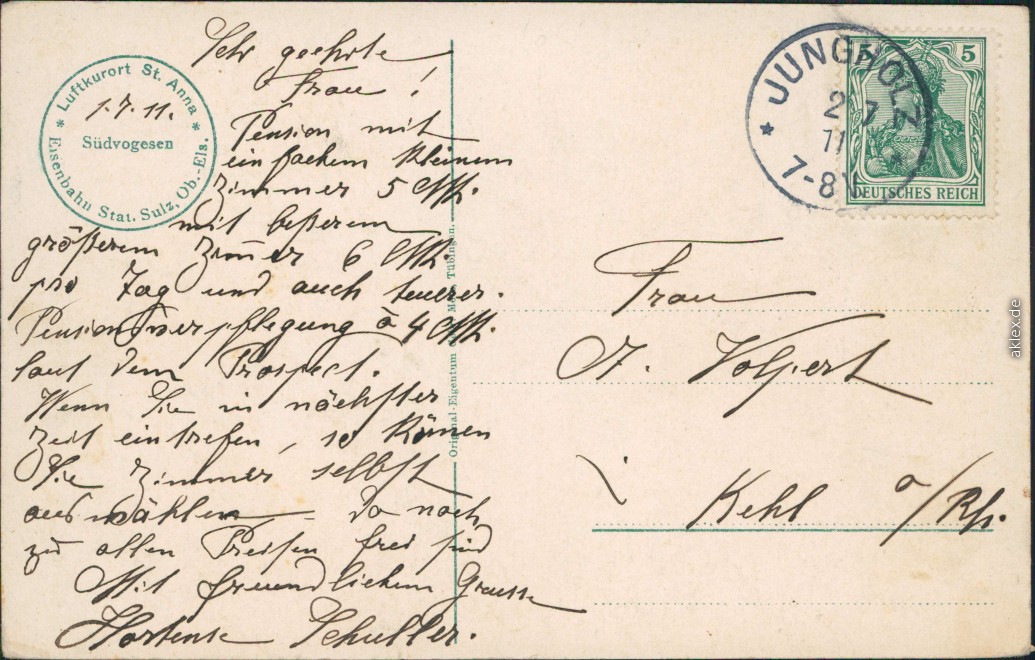 Sehr geehrte
Frau !
Pension mit
einfachem kleinem
Zimmer 5 Mk.
mit beßerem
größerem Zimer 6 Mk.
pro Tag und auch teuerer.
Pensionsverpflegung à 4 Mk.
laut dem Prospect.
Wenn Sie in nächster
Zeit eintrefen, so könen
Sie Zimmer selbst
auswählen – da noch
zu allen Preisen frei sind
Mit freundlichem Grusse
Hortense Schuller.
* Luftkurort St. Anna *
1.7.11.
Südvogesen
Eisenbahn Stat. Sulz, Ob.-Els.
Original-Eigentum Tübingen.
JUNGHOLZ
2 7
11
7-8 V
5 5
DEUTSCHES REICH
Frau
A. Volpert
i Kehl a/Rh.
aklex.de